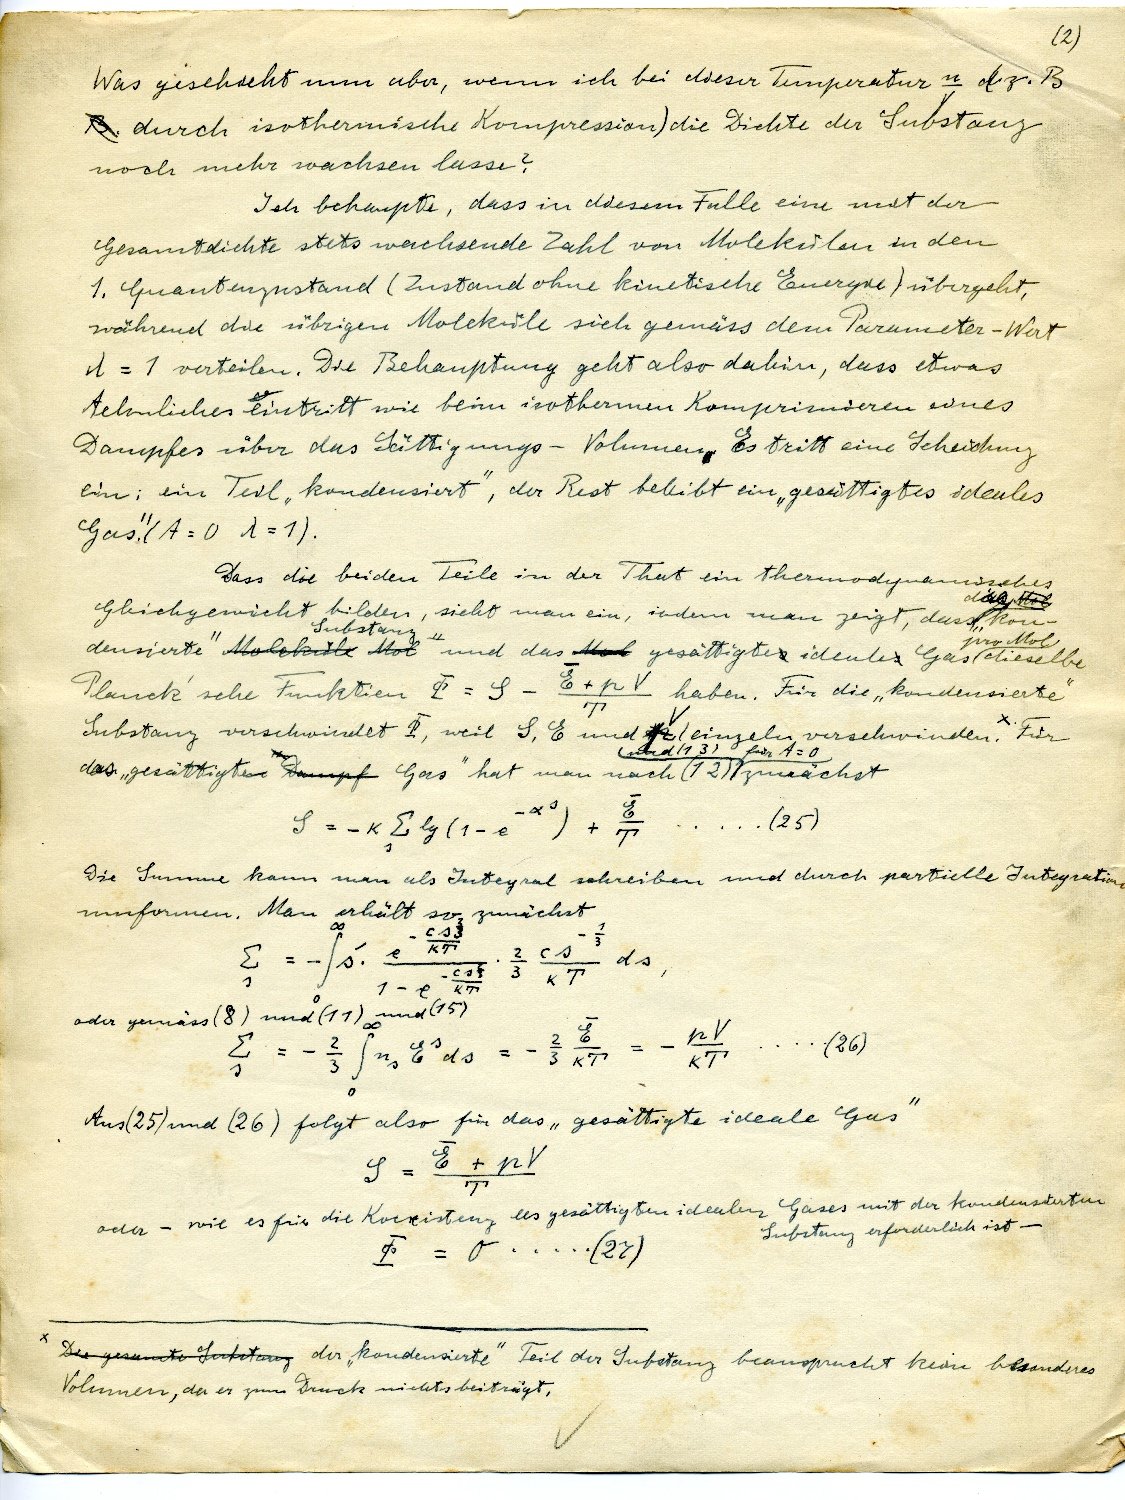 (2)
Was geschieht nun aber, wenn ich bei dieser Temperatur n/v (z. B
durch isothermische Kompression) die Dichte der Substanz
noch mehr wachsen lasse?
Ich behaupte, dass in diesem Falle eine mit der
Gesamtdichte stets wachsende Zahl von Molekülen in den
1. Quantenzustand (Zustand ohne kinetische Energie) übergeht,
während die übrigen Moleküle sich gemäss dem Parameter-Wert
λ = 1 verteilen. Die Behauptung geht also dahin, dass etwas
Aehnliches eintritt wie beim isothermen Komprimieren eines
Dampfes über das Sättigungs-Volumen. Es tritt eine Scheidung
ein; ein Teil „kondensiert", der Rest bleibt ein „gesättigtes ideales
Gas". (A = 0 λ = 1).
Dass die beiden Teile in der That ein thermodynamisches
Gleichgewicht bilden, sieht man ein, indem man zeigt, dass die „kon-
densierte" Substanz und das gesättigte ideale Gas pro Mol dieselbe
Planck'sche Funktion Φ = S − (Ē + pV)/T haben. Für die „kondensierte"
Substanz verschwindet Φ, weil S, E und V einzeln verschwinden.ˣ Für
das „gesättigte Gas" hat man nach (12) und (13) für A = 0 zunächst
S = −κ Σₛ lg(1 − e^(−αˢ)) + Ē/T . . . . . (25)
Die Summe kann man als Integral schreiben und durch partielle Integration
umformen. Man erhält so zunächst
Σₛ = −∫₀^∞ s · e^(−cs^(2/3)/κT) / (1 − e^(−cs^(2/3)/κT)) · 2/3 cs^(−1/3)/κT ds,
oder gemäss (8) und (11) und (15)
Σₛ = −2/3 ∫₀^∞ nₛ Eˢ ds = −2/3 Ē/κT = −pV/κT . . . . . (26)
Aus (25) und (26) folgt also für das „gesättigte ideale Gas"
S = (Ē + pV)/T
oder – wie es für die Koexistenz des gesättigten idealen Gases mit der kondensierten
Substanz erforderlich ist –
Φ = 0 . . . . . (27)
ˣ Die gesamte Substanz der „kondensierte" Teil der Substanz beansprucht kein besonderes
Volumen, da er zum Druck nichts beiträgt.